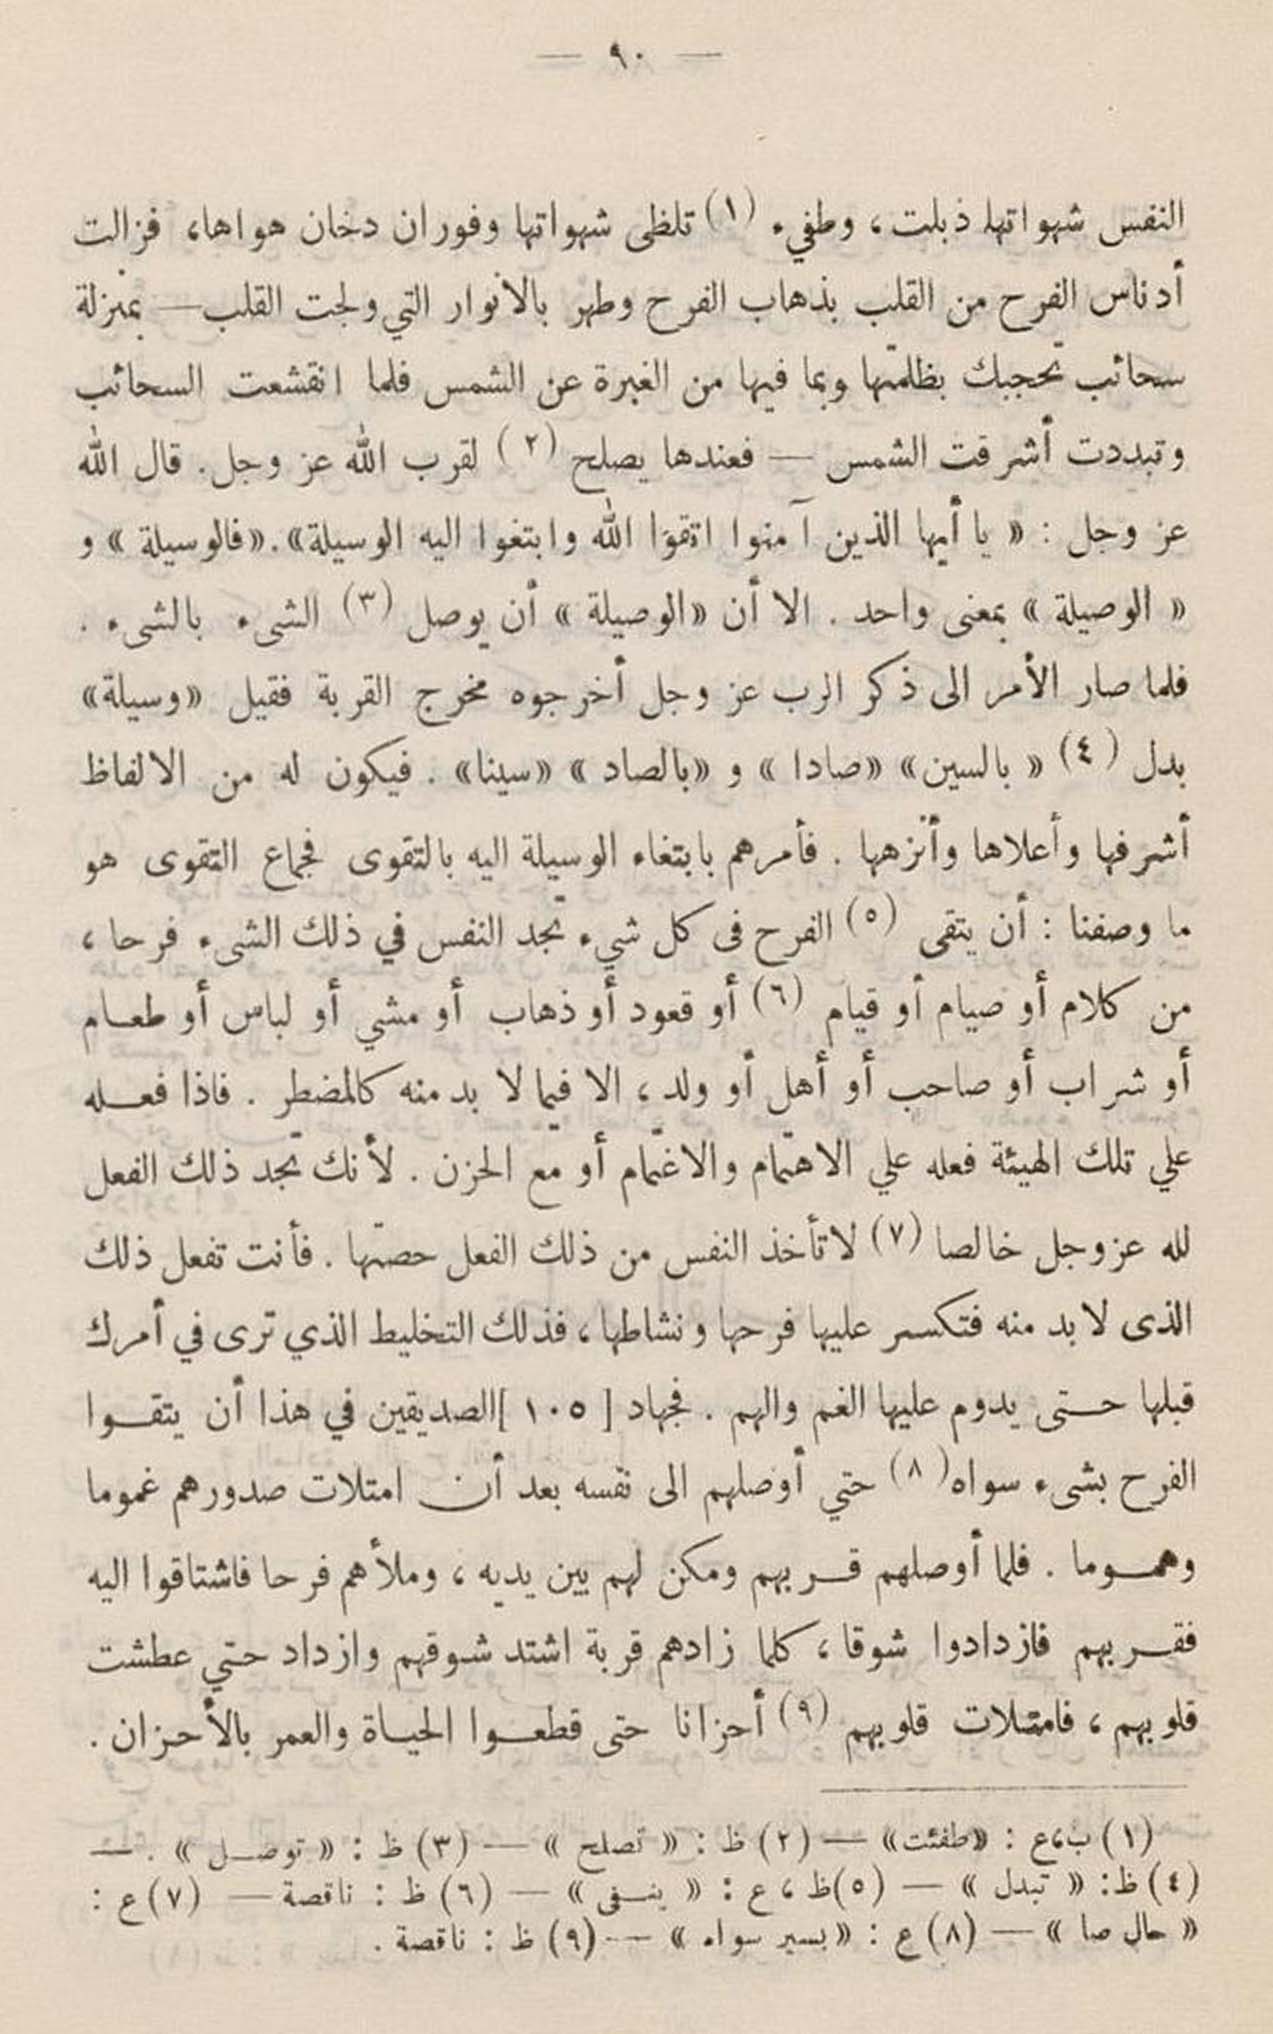 — ٩٠ —
النفس شهواتها ذبلت، وطفيء (١) تلظى شهواتها وفوران دخان هواها، فزالت
أدناس الفرح من القلب بذهاب الفرح وطهر بالانوار التي ولجت القلب — بمنزلة
سحائب تحجبك بظلمتها وبما فيها من الغبرة عن الشمس فلما انقشعت السحائب
وتبددت أشرقت الشمس — فعندها يصلح (٢) لقرب الله عز وجل. قال الله
عز وجل : « يا أيها الذين آمنوا اتقوا الله وابتغوا اليه الوسيلة». «فالوسيلة » و
« الوصيلة » بمعنى واحد . الا أن «الوصيلة » أن يوصل (٣) الشىء بالشىء .
فلما صار الأمر الى ذكر الرب عز وجل أخرجوه مخرج القربة فقيل «وسيلة»
بدل (٤) « بالسين» «صادا » و «بالصاد » «سينا» . فيكون له من الالفاظ
أشرفها وأعلاها وأنزهها . فأمرهم بابتغاء الوسيلة اليه بالتقوى فجماع التقوى هو
ما وصفنا : أن يتقى (٥) الفرح فى كل شيء تجد النفس في ذلك الشىء فرحا ،
من كلام أو صيام أو قيام (٦) أو قعود أو ذهاب أو مشي أو لباس أو طعام
أو شراب أو صاحب أو أهل أو ولد ، الا فيما لا بد منه كالمضطر . فاذا فعله
علي تلك الهيئة فعله علي الاهتمام والاغتمام أو مع الحزن . لأنك تجد ذلك الفعل
لله عزوجل خالصا (٧) لا تأخذ النفس من ذلك الفعل حصتها . فأنت تفعل ذلك
الذى لا بد منه فتكسر عليها فرحها ونشاطها ، فذلك التخليط الذي ترى في أمرك
قبلها حتى يدوم عليها الغم والهم . فجهاد [ ١٠٥ ] الصديقين في هذا أن يتقوا
الفرح بشىء سواه (٨) حتي أوصلهم الى نفسه بعد أن امتلات صدورهم غموما
وهموما . فلما أوصلهم قربهم ومكن لهم بين يديه ، وملأهم فرحا فاشتاقوا اليه
فقربهم فازدادوا شوقا ، كلما زادهم قربة اشتد شوقهم وازداد حتي عطشت
قلوبهم ، فامتلات قلوبهم (٩) أحزانا حتى قطعوا الحياة والعمر بالأحزان .
(١) ب،ع : «طفئت» — (٢) ظ : « تصلح » — (٣) ظ : « توصل » . —
(٤) ظ: « تبدل » — (٥) ظ ، ع : « ينفى » — (٦) ظ : ناقصة — (٧) ع :
« حال صا » — (٨) ع : « بسير سواه » — (٩) ظ : ناقصة .